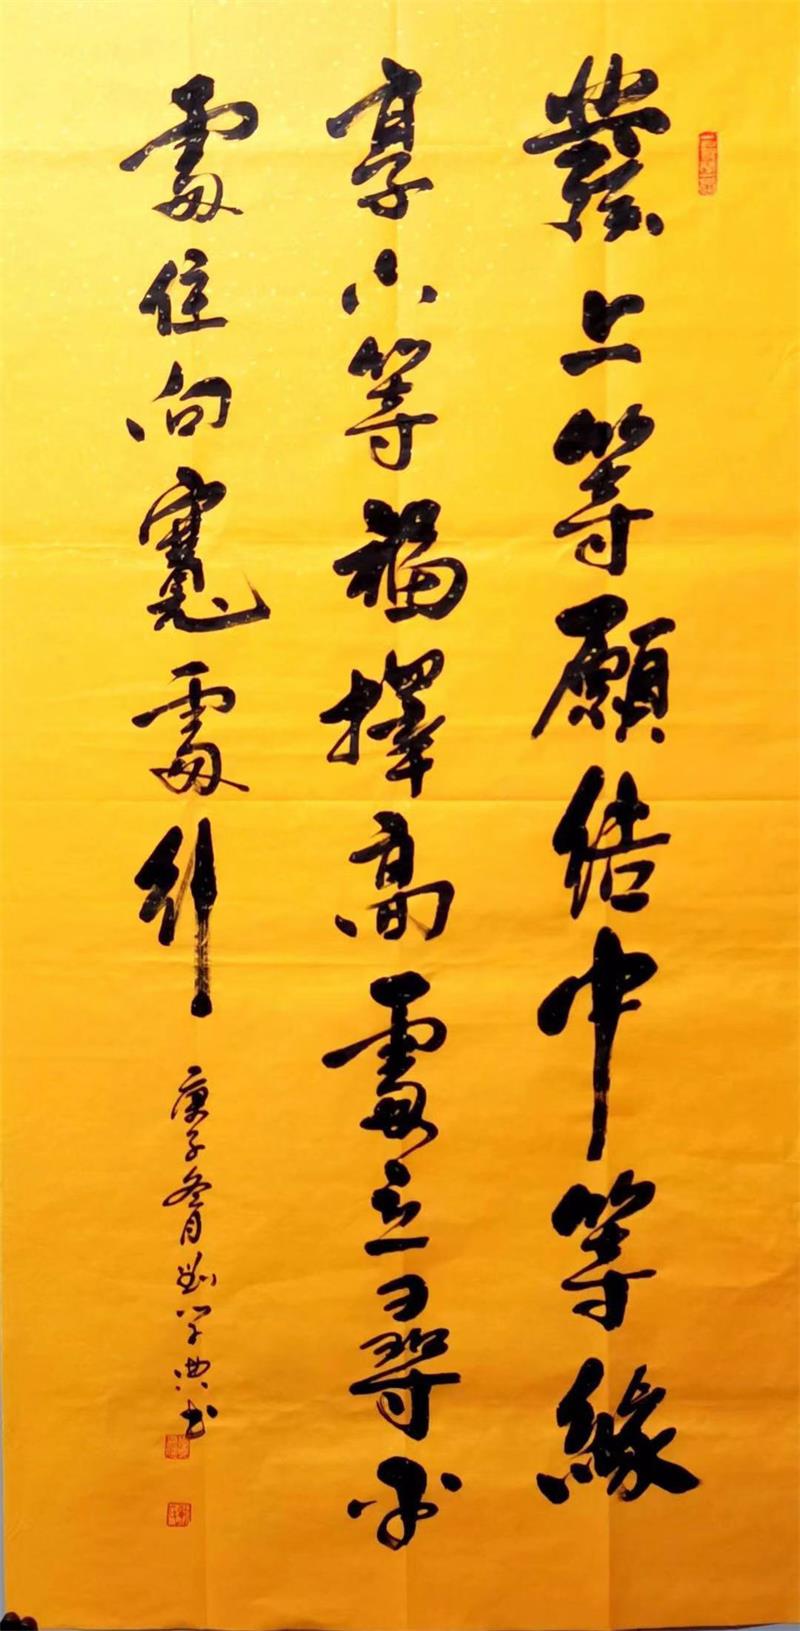 發上等願結中等緣
享下等福擇高處立尋平
處住向寬處行
庚子冬月劉学典书